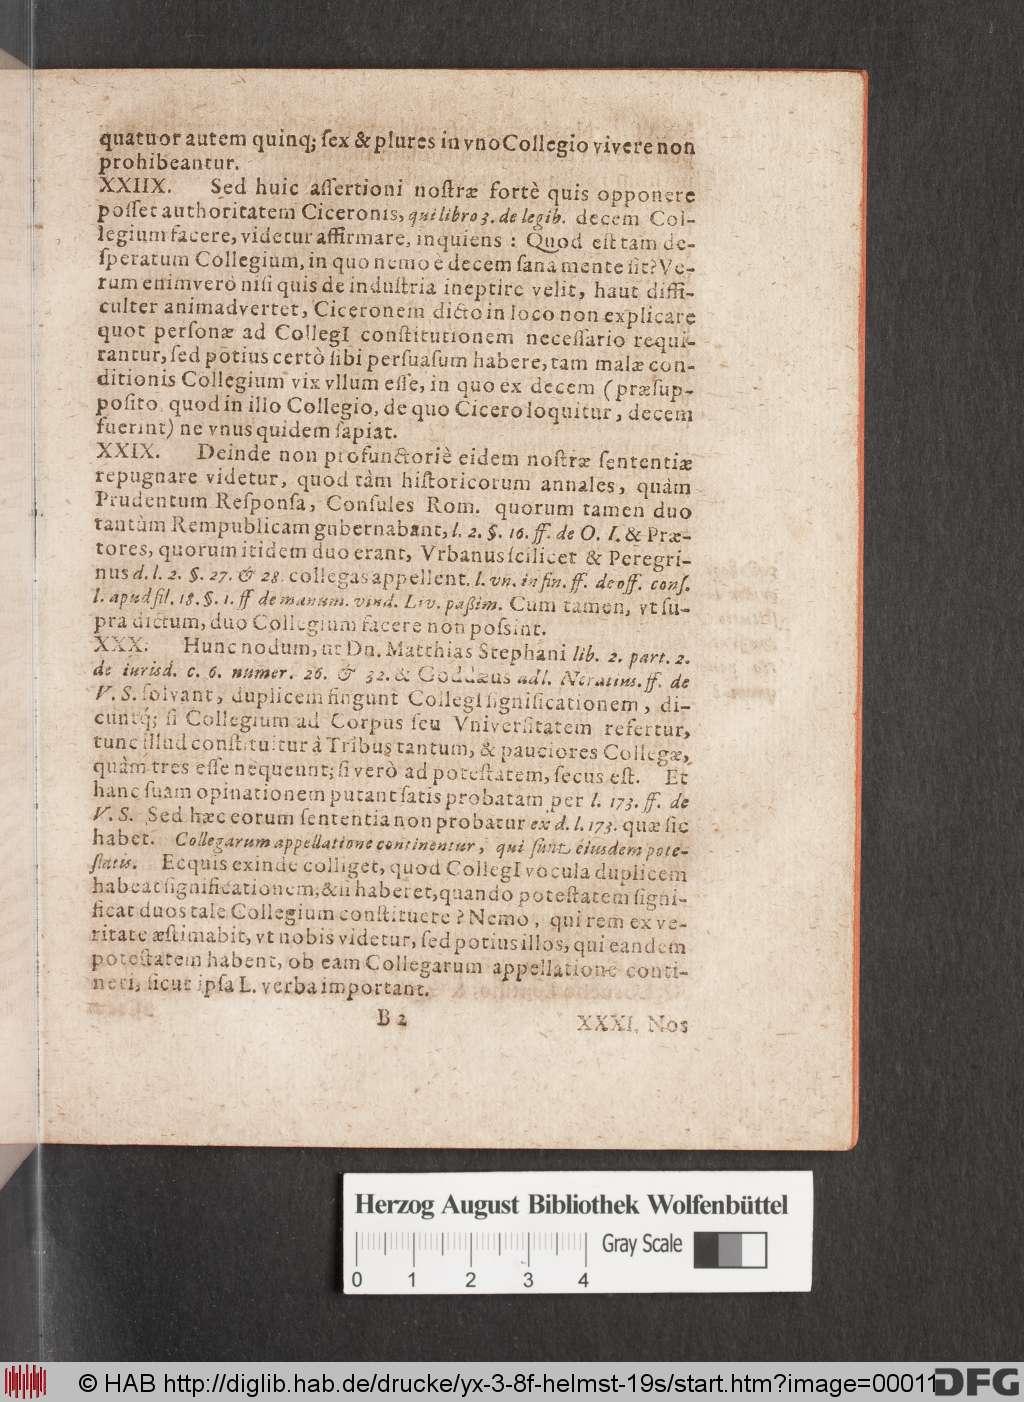 quatuor autem quinq; ſex & plures in vno Collegio vivere non
prohibeantur.
XXIIX. Sed huic aſſertioni noſtræ fortè quis opponere
poſſet authoritatem Ciceronis, qui libro 3. de legib. decem Col-
legium facere, videtur affirmare, inquiens : Quod eſt tam de-
ſperatum Collegium, in quo nemo è decem ſana mente ſit? Ve-
rum enimverò niſi quis de induſtria ineptire velit, haut diffi-
culter animadvertet, Ciceronem dicto in loco non explicare
quot perſonæ ad CollegI conſtitutionem neceſſario requi-
rantur, ſed potius certò ſibi perſuaſum habere, tam malæ con-
ditionis Collegium vix vllum eſſe, in quo ex decem (præſup-
poſito quod in illo Collegio, de quo Cicero loquitur, decem
fuerint) ne vnus quidem ſapiat.
XXIX. Deinde non profunctoriè eidem noſtræ ſententiæ
repugnare videtur, quod tàm hiſtoricorum annales, quàm
Prudentum Reſponſa, Conſules Rom. quorum tamen duo
tantùm Rempublicam gubernabant, l. 2. §. 16. ff. de O. I. & Præ-
tores, quorum itidem duo erant, Vrbanus ſcilicet & Peregri-
nus d. l. 2. §. 27. & 28. collegas appellent. l. vn. in fin. ff. de off. conſ.
l. apud fil. 18. §. 1. ff de manum. vind. Liv. paßim. Cum tamen, vt ſu-
pra dictum, duo Collegium facere non poſsint.
XXX. Hunc nodum, ut Dn. Matthias Stephani lib. 2. part. 2.
de iurisd. c. 6. numer. 26. & 32. & Goddæus ad l. Neratius. ff. de
V. S. ſolvant, duplicem fingunt CollegI ſignificationem, di-
cuntq́; ſi Collegium ad Corpus ſeu Vniverſitatem refertur,
tunc illud conſtituitur à Tribus tantum, & pauciores Collegæ,
quàm tres eſſe nequeunt; ſi verò ad poteſtatem, ſecus eſt. Et
hanc ſuam opinationem putant ſatis probatam per l. 173. ff. de
V. S. Sed hæc eorum ſententia non probatur ex d. l. 173. quæ ſic
habet. Collegarum appellatione continentur, qui ſunt eiusdem pote-
ſtatis. Ecquis exinde colliget, quod CollegI vocula duplicem
habeat ſignificationem, & ſi haberet, quando poteſtatem ſigni-
ficat duos tale Collegium conſtituere? Nemo, qui rem ex ve-
ritate æſtimabit, vt nobis videtur, ſed potius illos, qui eandem
poteſtatem habent, ob eam Collegarum appellatione conti-
neri, ſicut ipſa L. verba important.
B 2
XXXI. Nos
Herzog August Bibliothek Wolfenbüttel
Gray Scale
0 1 2 3 4
© HAB http://diglib.hab.de/drucke/yx-3-8f-helmst-19s/start.htm?image=00011
DFG